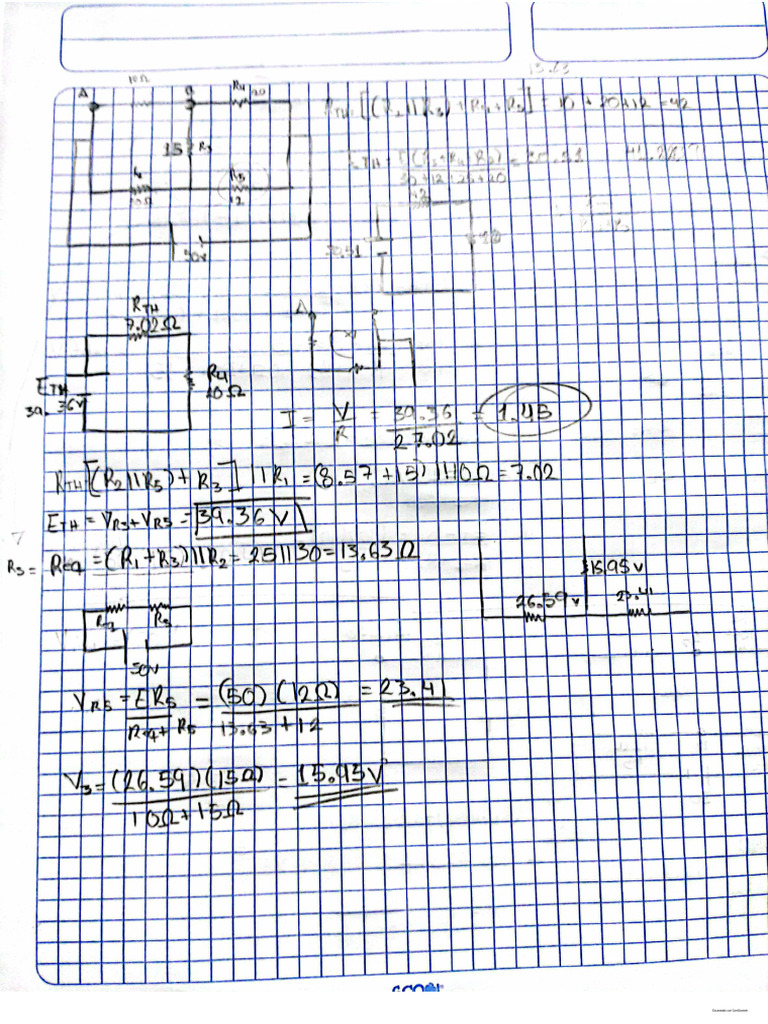 10Ω
A
R4
20
15 R3
R5
12
50V
RTH [(R2||R3)+R4+R5] = 10+20+12=42
30+12+25+20
RTH
7.02Ω
ETH
39.36V
R4
20Ω
A
I = V/R = 39.36/27.02 = 1.45
RTH[(R2||R5)+R3]||R1=(8.57+15)||10Ω=7.02
ETH=VR3+VR5=39.36V
R3= Req=(R1+R3)||R2=25||30=13.63Ω
15.95V
26.59V
23.41
Req
50V
VR5=ER5/Req+R5=(50)(12Ω)/13.63+12=23.41
V3=(26.59)(15Ω)/10Ω+15Ω=15.95V